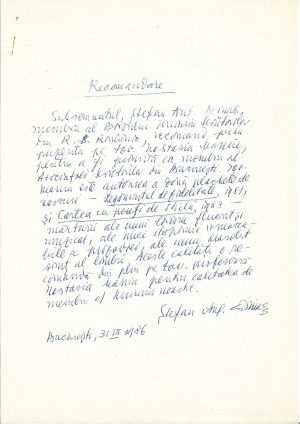 Recomandare
Subsemnatul, Ștefan Aug. Doinaș,
membru al Biroului Uniunii Scriitorilor
din R. S. România recomand prin
prezenta pe tov. Nastasia Maniu,
pentru a fi primită ca membru al
Asociației Scriitorilor din București. Tov.
Maniu este autoarea a două plachete de
versuri - de fidelitate, 1981,
și Cartea cu poeți de sticlă, 1983 -
mărturii ale unui lirism fluent și
ale unei stăpîniri remarca-
bile a prozodiei, ale unui deosebit
simț al limbii. Aceste calități o re-
comandă din plin pe tov. profesoară
Nastasia Maniu pentru calitatea de
membru al Uniunii noastre.
Ștefan Aug. Doinaș
București, 31 III 1986